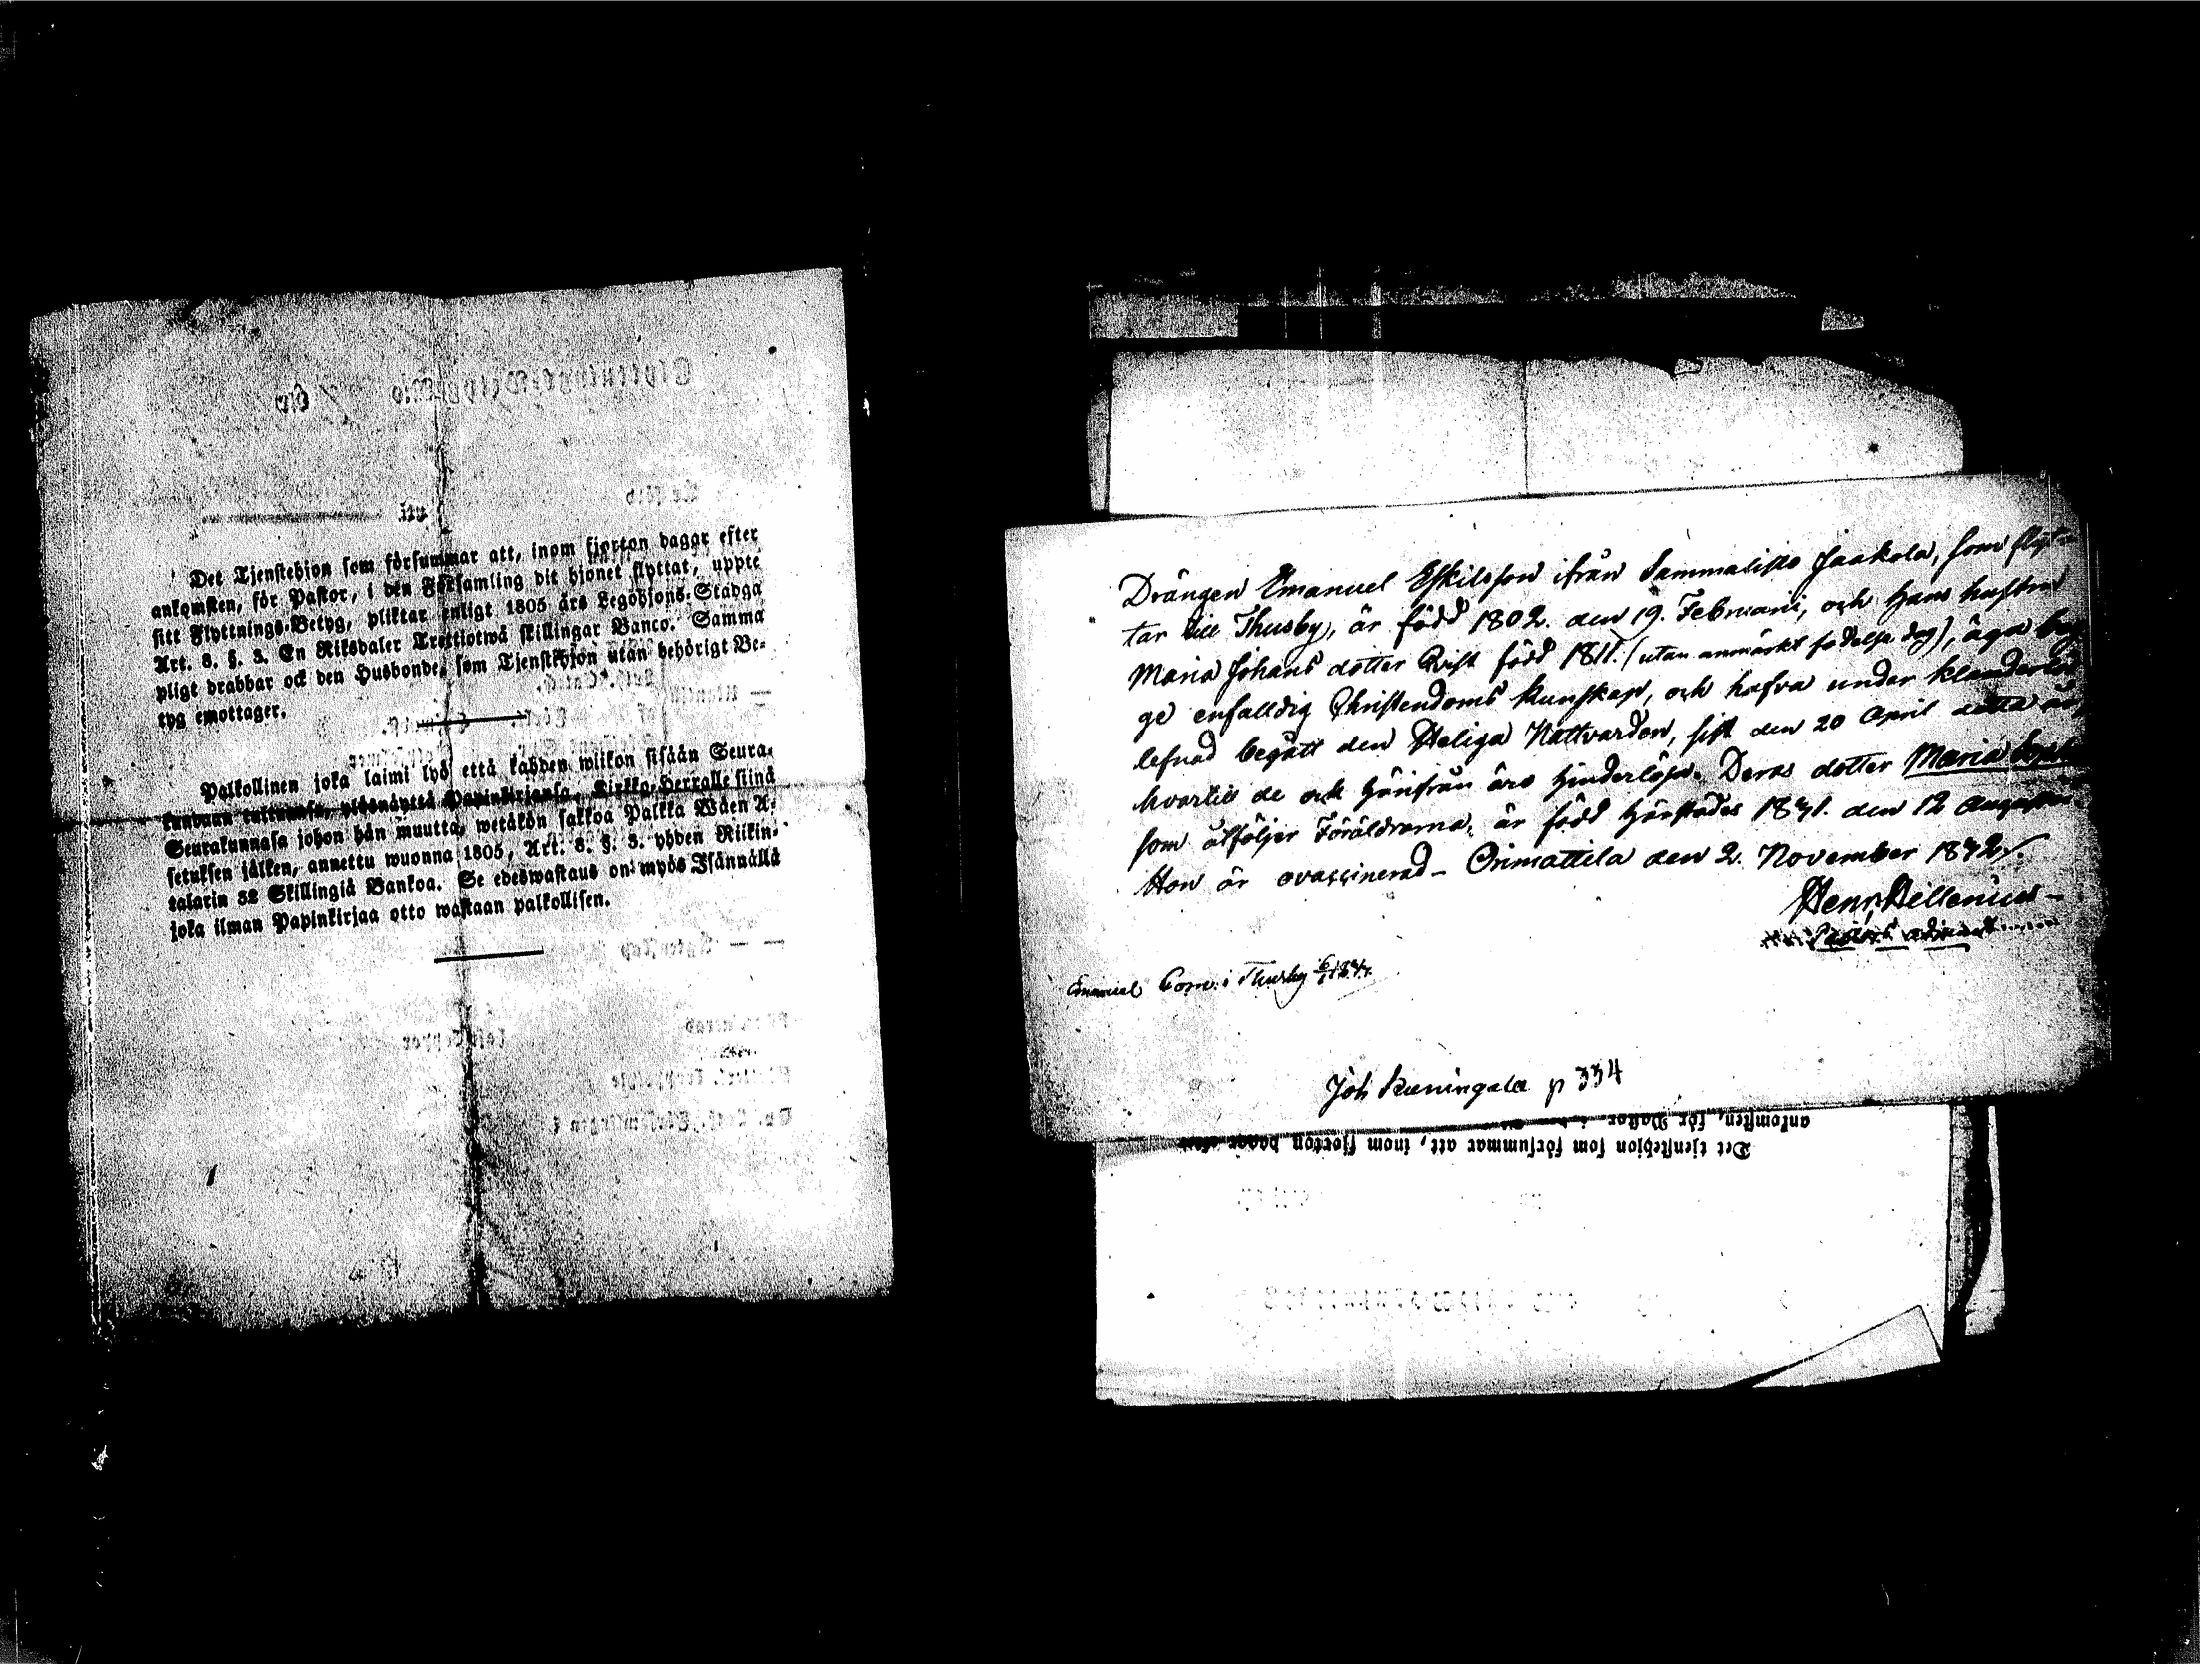 Det Tjenstehjon som försummar att, inom fjorton dagar efter
ankomsten, för Pastor, i den Församling dit hjonet flyttat, uppte
sitt Flyttnings-Betyg, pliktar enligt 1805 års Legohjons-Stadga
Art. 8. §. 3. En Riksdaler Trettiotwå skillingar Banco. Samma
pligt drabbar ock den Husbonde, som Tjenstehjon utan behörigt Be-
tyg emottager.
Palkollinen joka laimi lyö että kahden wiikon sisään Seura-
kundaan tultuansa, ylösnäyttä Papinkirjansa, Kirkko-Herralle siinä
Seurakunnasa johon hän muutta, wetäkön sakkoa Palkka Wäen A-
setuksen jälken, annettu wuonna 1805, Art. 8. §. 3. yhden Riikin-
talarin 32 Skillingiä Bankoa. Se edeswastaus on myös Isännällä
joka ilman Papinkirjaa otto wastaan palkollisen.
Drängen Emanuel Eskilsson ifrån Sammalisto Jaakola, som flyt-
tar till Thusby, är född 1802. den 19. Februarii, och hans hustru
Maria Johans dotter Qvist född 1811. (utan anmärkt födelse dag), äga
ge enfalldig Christendoms kunskap, och hafva under klanderlös
lefnad begått den Heliga Nattvarden, sist den 20 April detta år,
hvartill de ock härifrån äro hinderlösa. Deras dotter Maria
som åtföljer Föräldrarna, är född härstädes 1841. den 12 Augusti
Hon är ovaccinerad - Orimattila den 2. November 1842.
Henr. Hellenius
Pastors adjunct
Emanuel Com. i Thusby
Joh p 334
ankomsten, för Pastor, i
Det tjenstehjon som försummar att, inom fjorton dagar